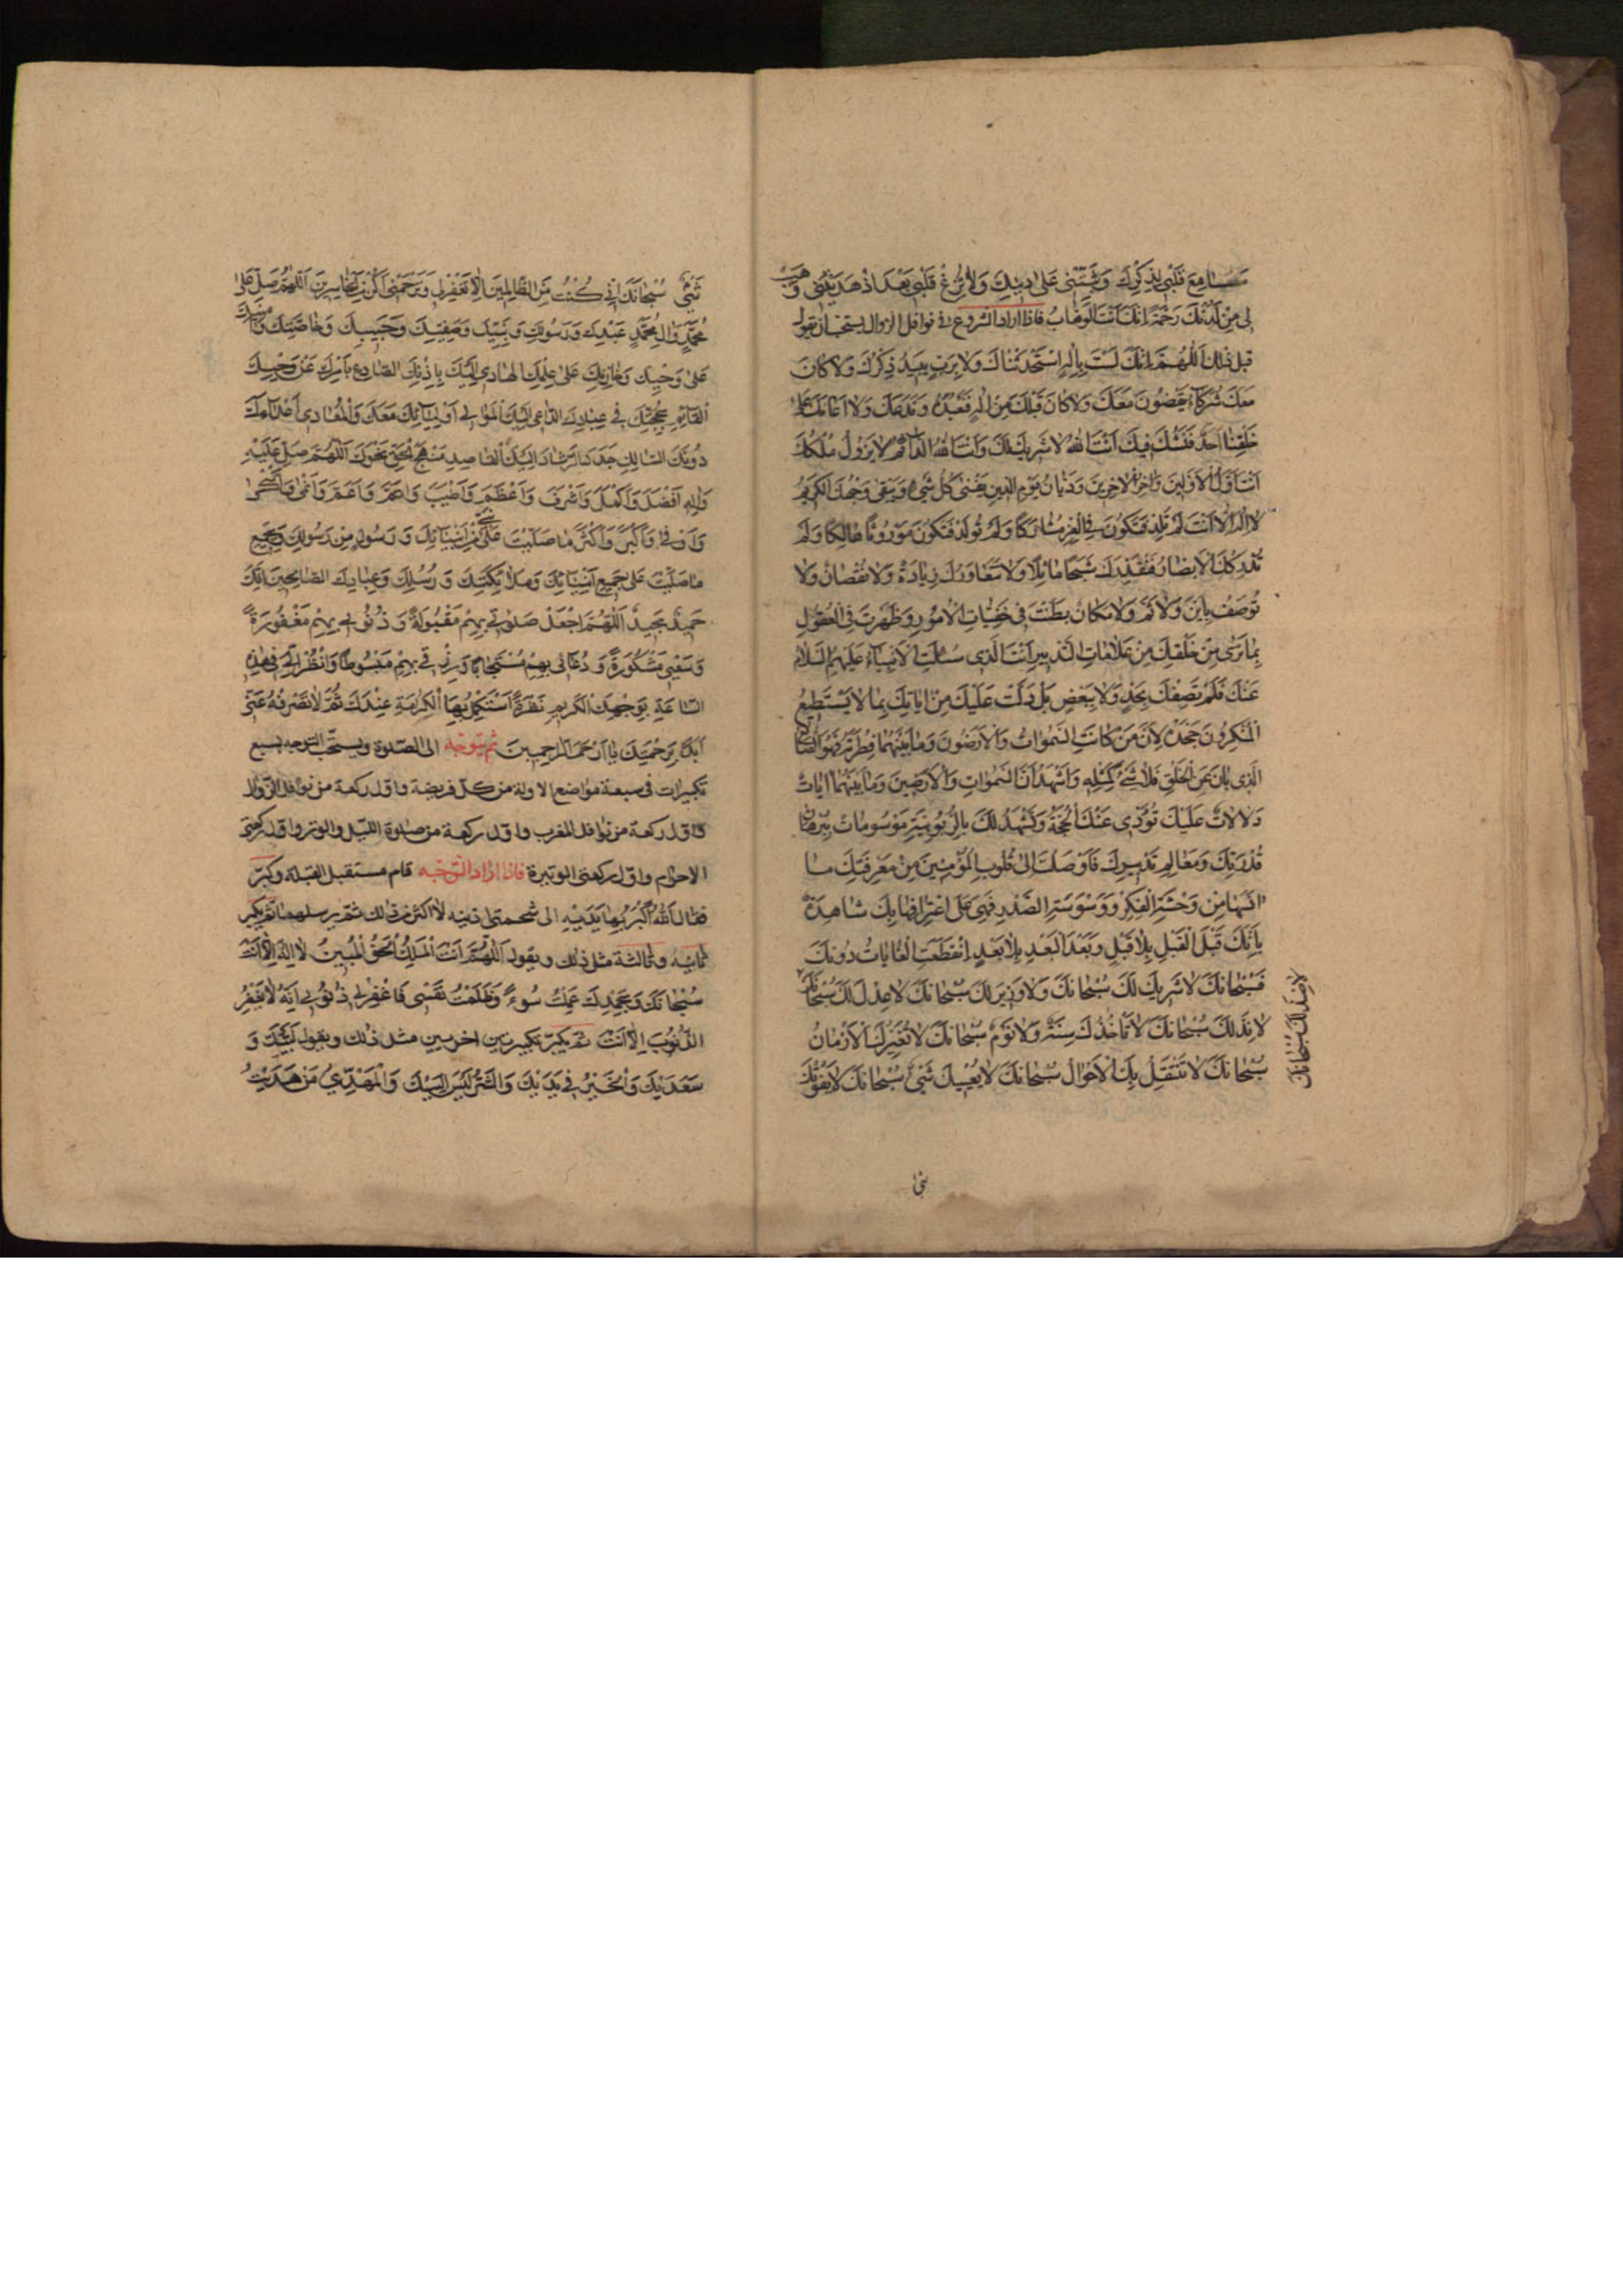 مسامع قلبي لذكرك وثبتني على دينك ولا تزغ قلبي بعد اذ هديتني وهب
لي من لدنك رحمة انك انت الوهاب فاذا اراد الشروع في نوافل الزوال يستحب ان يقول
قبل ذلك اللهم انك لست باله استحدثناك ولا برب يبيد ذكرك ولا كان
معك شركاء يقضون معك ولا كان قبلك من اله فنعبده وندعك ولا اعانك على
خلقنا احد فنشك فيك انت الله لا شريك لك وانت الله الدائم لا يزول ملكك
انت اول الاولين واخر الاخرين وديان يوم الدين يفنى كل شيء ويبقى وجهك الكريم
لا اله الا انت لم تلد فتكون في العز مشاركا ولم تولد فتكون موروثا هالكا ولم
تدركك الابصار فتقدرك شبحا ماثلا ولا تتعاورك زيادة ولا نقصان ولا
توصف باين ولا ثم ولا مكان بطنت في خفيات الامور وظهرت في العقول
بما نرى من خلقك من علامات التدبير انت الذي سئلت الانبياء عليهم السلام
عنك فلم تصفك بحد ولا ببعض بل دلت عليك من اياتك بما لا يستطيع
المنكرون جحده لان من كانت السموات والارضون وما بينهما فطرته فهو الصانع
الذي بان عن الخلق فلا شيء كمثله واشهد ان السموات والارضين وما بينهما ايات
دلالات عليك تؤدي عنك الحجة وتشهد لك بالربوبية موسومات ببرهان
قدرتك ومعالم تدبيرك فاوصلت الى قلوب المؤمنين من معرفتك ما
انسها من وحشة الفكر ووسوسة الصدر فهي على اعترافها بك شاهدة
بانك قبل القبل بلا قبل وبعد البعد بلا بعد انقطعت الغايات دونك
فسبحانك لا شريك لك سبحانك ولا وزير لك سبحانك لا عدل لك سبحانك
لا ند لك سبحانك لا تاخذك سنة ولا نوم سبحانك لا تغيرك الازمان
سبحانك لا تنتقل بك الاحوال سبحانك لا يعييك شيء سبحانك لا يفوتك
لا ضد لك سبحانك
شيء سبحانك اني كنت من الظالمين الا تغفر لي وترحمني اكن من الخاسرين اللهم صل على
محمد وال محمد عبدك ورسولك ونبيك وصفيك وحبيبك وخاصتك وامينك
على وحيك وخازنك على علمك الهادي اليك باذنك الصادع بامرك عن وحيك
القائم بحجتك في عبادك الداعي اليك الموالي اوليائك معك والمعادي اعداءك
دونك السالك جدد الرشاد اليك القاصد منهج الحق نحوك اللهم صل عليه
واله افضل واكمل واشرف واعظم واطيب واتم واعم وانمى وازكى
واوفى واكبر واكثر ما صليت على نبي من انبيائك ورسول من رسولك وبجميع
ما صليت على جميع انبيائك وملائكتك ورسلك وعبادك الصالحين انك
حميد مجيد اللهم اجعل صلوتي بهم مقبولة وذنوبي بهم مغفورة
وسعيي مشكورة ودعائي بهم مستجابا ورزقي بهم مبسوطا وانظر الي في هذه
الساعة بوجهك الكريم نظرة استكمل بها الكرامة عندك ثم لا تصرفه عني
ابدا برحمتك يا ارحم الراحمين ثم توجه الى الصلوة ويستحب التوجه بسبع
تكبيرات في سبعة مواضع الاولة من كل فريضة واول ركعة من نوافل الزوال
واول ركعة من نوافل المغرب واول ركعة من صلوة الليل والوتر واول ركعتي
الاحرام واول ركعتي الوتيرة فاذا اراد التوجه قام مستقبل القبلة وكبر
فقال الله اكبر بها يديه الى شحمتي اذنيه لا اكثر من ذلك ثم يرسلهما ثم يكبر
ثانية وثالثة مثل ذلك ويقول اللهم انت الملك الحق المبين لا اله الا انت
سبحانك وبحمدك عملت سوءا وظلمت نفسي فاغفر لي ذنوبي انه لا يغفر
الذنوب الا انت ثم يكبر تكبيرتين اخريين مثل ذلك ويقول لبيك و
سعديك والخير في يديك والشر ليس اليك والمهدي من هديت